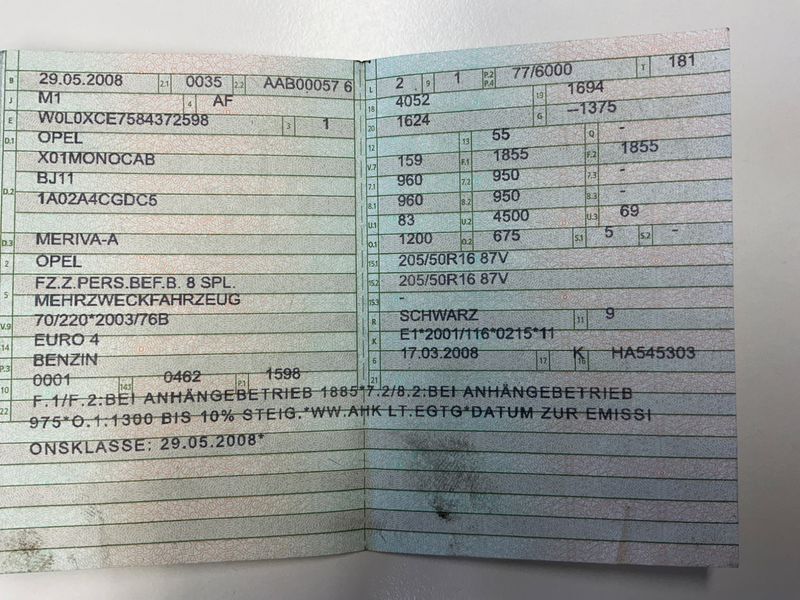 B 29.05.2008 2.1 0035 2.2 AAB00057 6
J M1 4 AF
E W0L0XCE7584372598 3 1
D.1 OPEL
X01MONOCAB
D.2 BJ11
1A02A4CGDC5
D.3 MERIVA-A
2 OPEL
5 FZ.Z.PERS.BEF.B. 8 SPL.
MEHRZWECKFAHRZEUG
V.9 70/220*2003/76B
14 EURO 4
P.3 BENZIN
10 0001 14.1 0462 P.1 1598
L 2 9 1 P.2 P.4 77/6000 T 181
18 4052 19 1694
20 1624 G –1375
12 13 55 Q -
V.7 159 F.1 1855 F.2 1855
7.1 960 7.2 950 7.3 -
8.1 960 8.2 950 8.3 -
U.1 83 U.2 4500 U.3 69
O.1 1200 O.2 675 S.1 5 S.2 -
15.1 205/50R16 87V
15.2 205/50R16 87V
15.3 -
R SCHWARZ 11 9
K E1*2001/116*0215*11
6 17.03.2008 17 K 16 HA545303
21
22 F.1/F.2:BEI ANHÄNGEBETRIEB 1885*7.2/8.2:BEI ANHÄNGEBETRIEB
975*O.1:1300 BIS 10% STEIG.*WW.AHK LT.EGTG*DATUM ZUR EMISSI
ONSKLASSE: 29.05.2008*